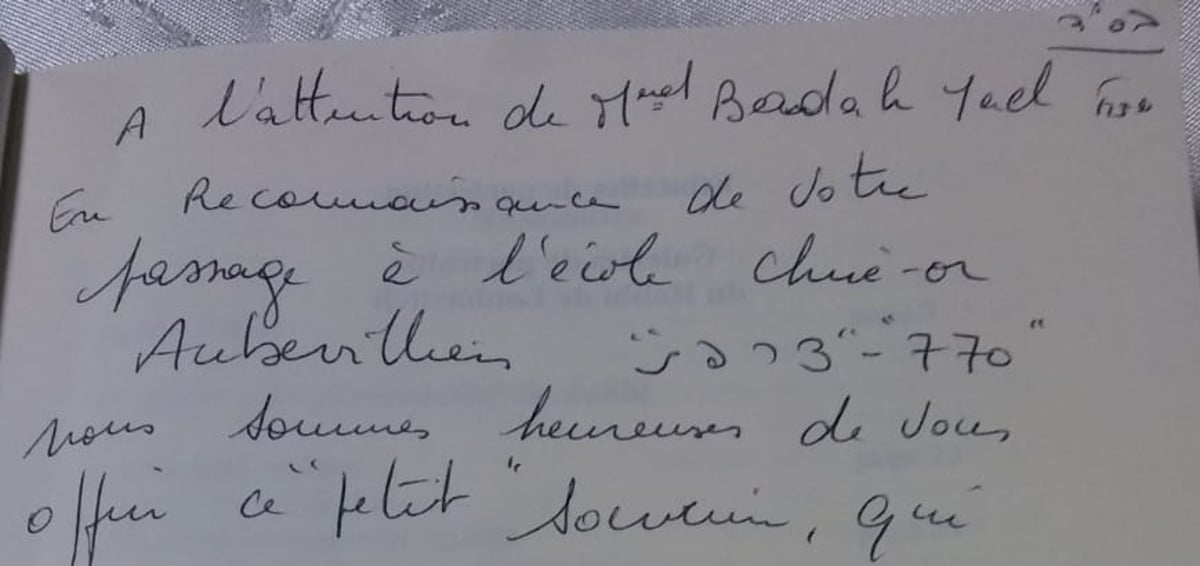 ב"ה
A l'attention de Mmel Bendah Yael
En Reconnaissance de votre
passage à l'école Chné-or
Aubervilliers "770"
nous sommes heureuses de vous
offrir ce "petit" souvenir, qui